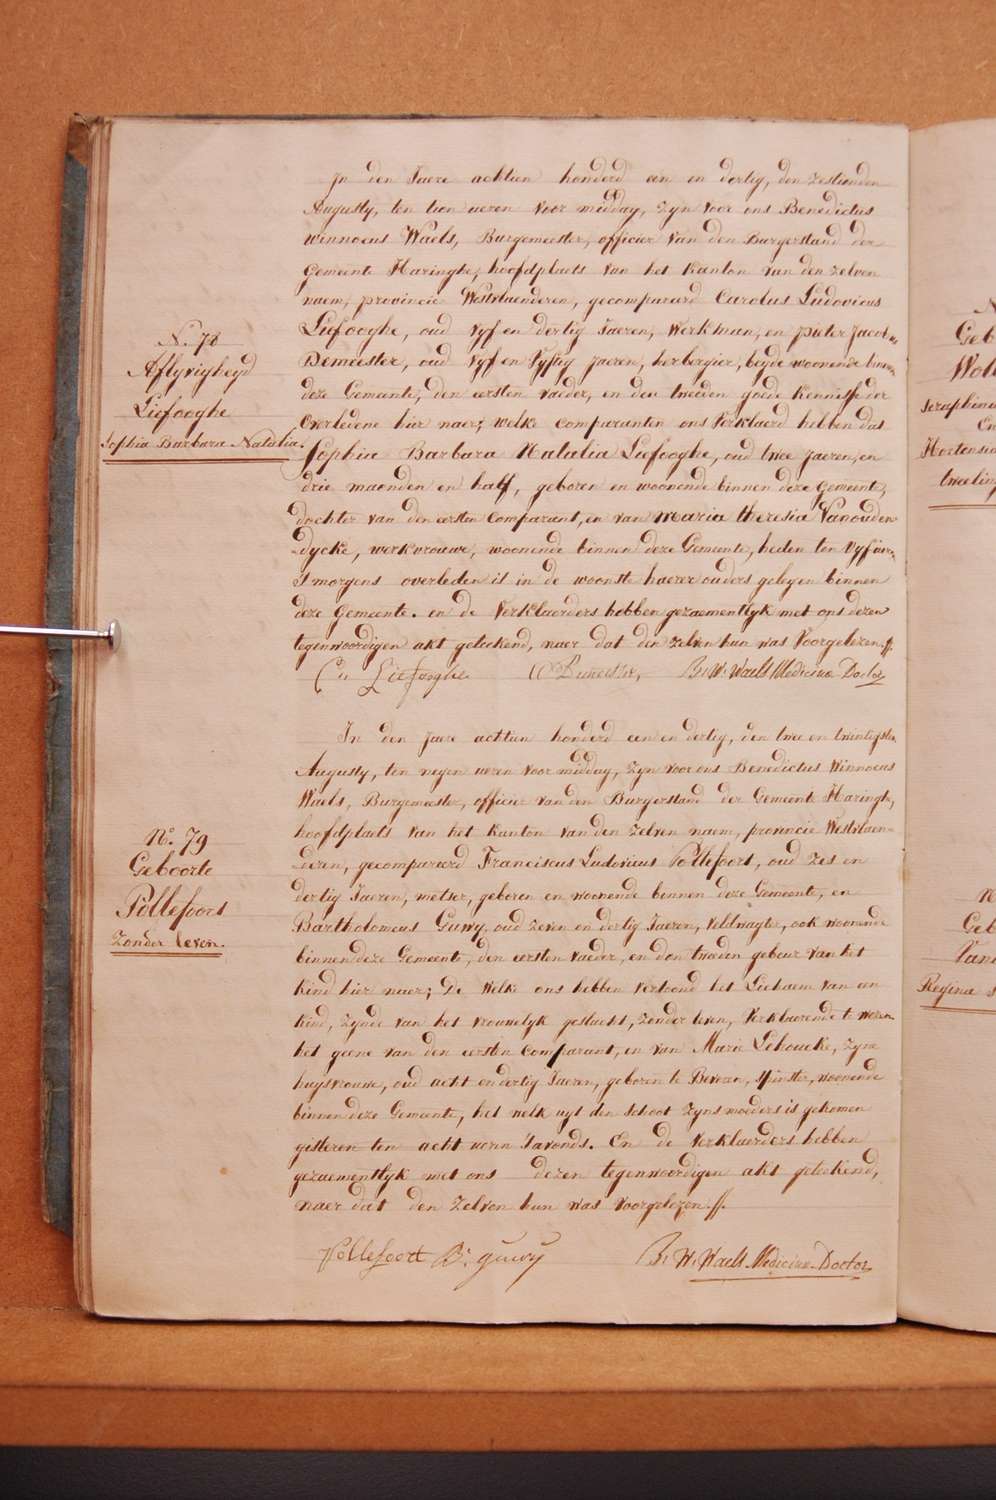 N. 78
Aflyvigheyd
Liefooghe
Sophia Barbara Natalia.
In den Jaere achtien honderd een en dertig, den zestienden
Augusty, ten tien ueren voor middag, zyn voor ons Benedictus
Winnocus Waels, Burgemeester, officier van den Burgerstand der
Gemeente Haringhe, hoofdplaets van het Kanton van den zelven
naem, provincie Westvlaenderen, gecompareerd Carolus Ludovicus
Liefooghe, oud vyf en dertig Jaeren, Werkman, en pieter Jacobus
Demeester, oud vyf en vyftig jaeren, herbergier, beyde woonende binnen
deze Gemeente, den eersten vaeder, en den tweeden goede kennisse der
Overledene hier naer; welke comparanten ons verklaerd hebben dat
Sophia Barbara Natalia Liefooghe, oud twee jaeren, en
drie maenden en half, geboren en woonende binnen deze Gemeente,
dochter van den eersten Comparant, en van Maria theresia Vanouden-
-dycke, werkvrouwe, woonende binnen deze Gemeente, heden ten vyf uren
S'morgens overleden is in de woonste haerer ouders gelegen binnen
deze Gemeente. en de verklaerders hebben gezaementlyk met ons dezen
tegenwoordigen akt geteekend, naer dat den zelven hun was voorgelezen.//.
Liefooghe Demeester, B. W. Waels Medicinæ Doctor
N.º 79
Geboorte
Pollefoort
Zonder leven.
In den jare achtien honderd een en dertig, den twee en twintigsten
Augusty, ten negen ueren voor middag, zyn voor ons Benedictus Winnocus
Waels, Burgemeester, officier van den Burgerstand der Gemeente Haringhe,
hoofdplaets van het Kanton van den zelven naem, provincie Westvlaen-
-deren, gecompareerd Franciscus Ludovicus Pollefoort, oud zes en
dertig Jaeren, metser, geboren en woonende binnen deze Gemeente, en
Bartholomeus Guwy, oud zeven en dertig Jaeren, veldwagter, ook woonende
binnen deze Gemeente, den eersten vaeder, en den tweeden gebeur van het
kind hier naer; De welke ons hebben vertoond het Lichaem van een
kind, zynde van het vrouwelyk geslacht, zonder leven, verklaerende te wezen
het geene van den eersten comparant, en van Marie Lehoucke, zyne
huysvrouwe, oud acht en dertig Jaeren, geboren te Beveren, spinster, woonende
binnen deze Gemeente, het welk uyt den schoot zyns moeders is gekomen
gisteren ten acht ueren s'avonds. En de verklaerders hebben
gezaementlyk met ons dezen tegenwoordigen akt geteekend,
naer dat den zelven hun was voorgelezen.//.
Pollefoort B. guwy B. W. Waels Medicinæ Doctor